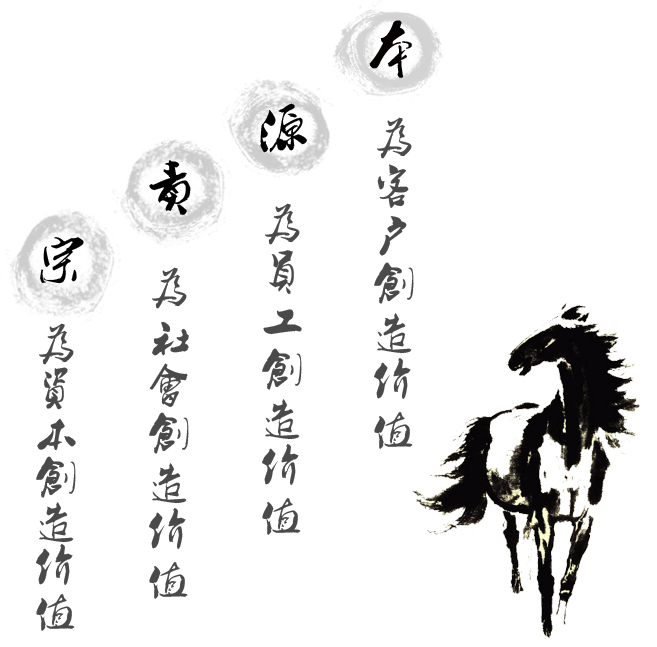 本
為客户創造价值
源
為員工創造价值
責
為社會創造价值
宗
為資本創造价值